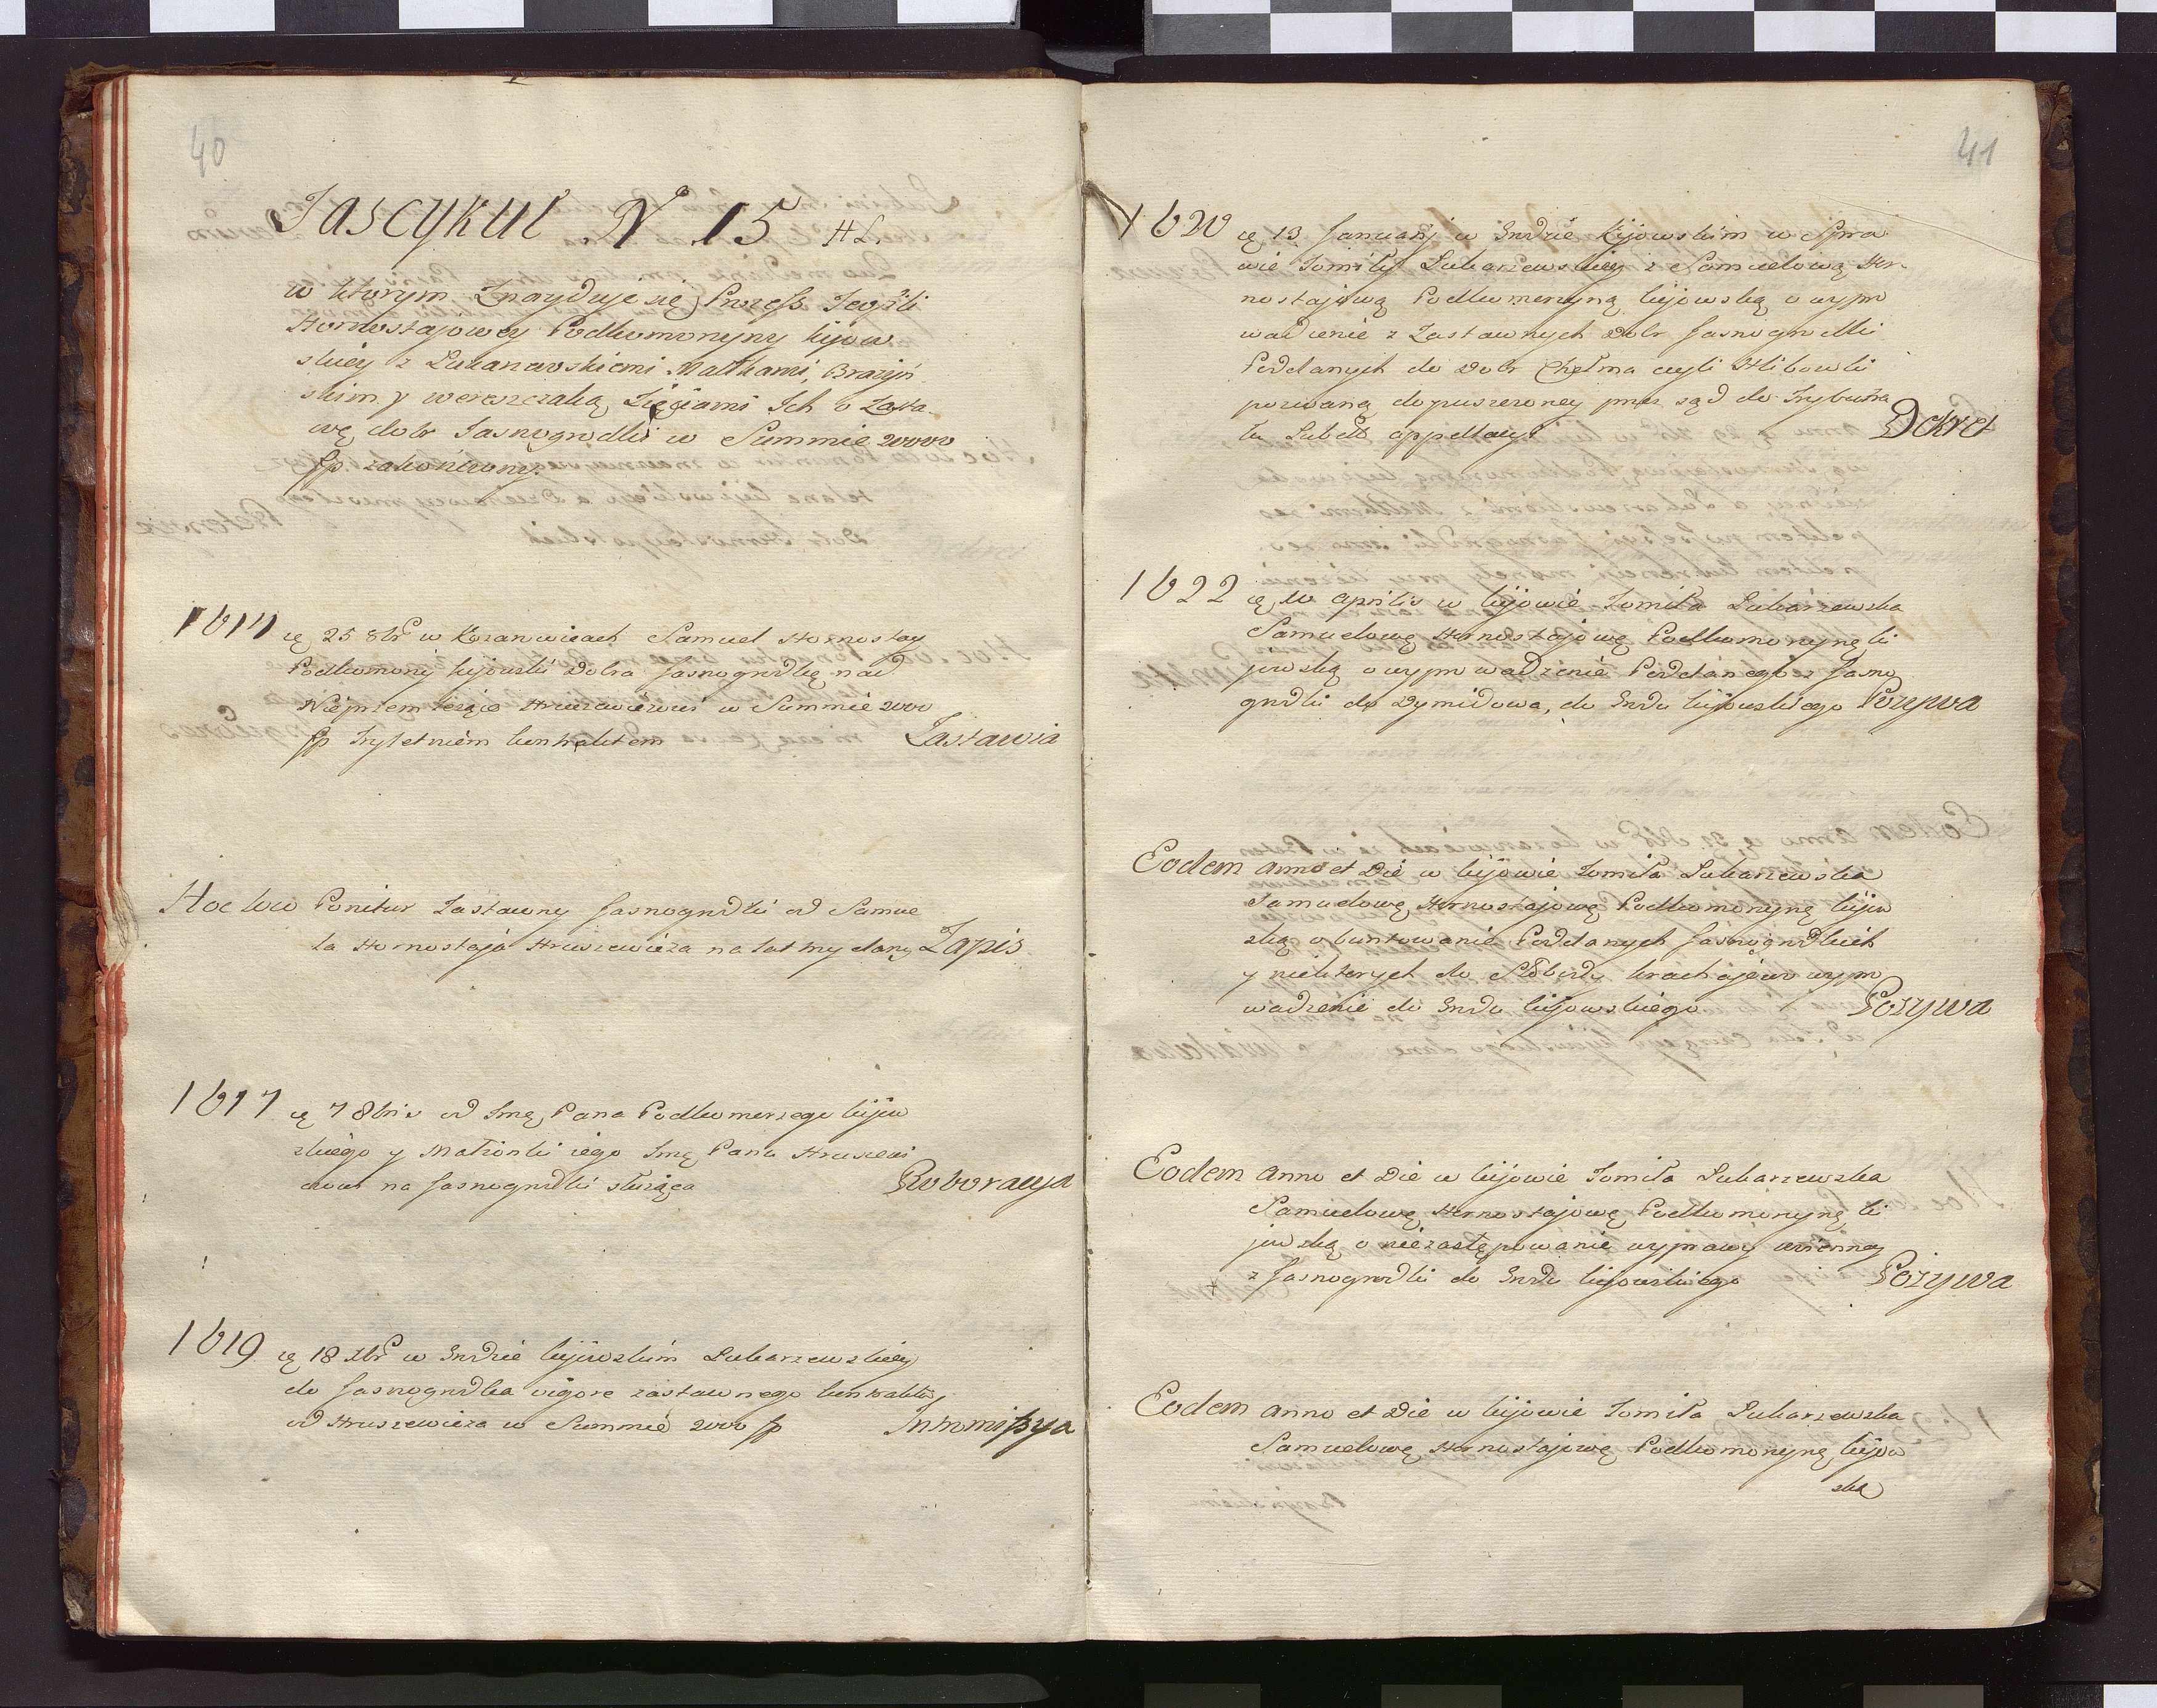 40
Fascykuł N 15 HL.
w ktorym Znayduie się Process Teofili
Hornostajowey Podkomorzyny kijow
skiey z Lukarzewskiemi Matkami,
skim y wereszczaką Zięciami Ich o Zasta
wę dobr Jasnogrodki w Summie 20000
fp. zakończony.
1617 ę 25 8br w Kozarowicach Samuel Hornostay
Podkomorzy kijowski Dobra Jasnogrodkę nad
w Summie 2000
fp trzyletniem kontraktem Zastawia
Hoc loco Ponitur Zastawny Jasnogrodki od Samue
la Hornostaja Hruszewicza na lat trzy dany Zapis
1617 ę 7 8bris od Jmę Pana Podkomorzego kijow
skiego y Małżonki iego Jmę Panu Hruszewi
czowi na Jasnogrodki służąca Roboracya
1619 ę 18 xbr w Grodzie kijowskim Lukarzewskiey
do Jasnogrodka vigore zastawnego kontraktu
od Hruszewicza w Summie 2000 fp Intromissya
41
1620 ę 13 Januarij w Grodzie Kijowskim w Spra
wie Tomiły Lukarzewskiey z Samuelową Hor
nostajową Podkomorzyną kijowską o wypro
wadzenie z Zastawnych Dobr Jasnogrodki
Poddanych do Dobr Chełma czyli Hlibowki
pozwaną dopuszczoney przez sąd do Trybuna
łu Lubelb appellacyi Dekret
1622 ę 10 Aprilis w kijowie Tomiła Lukarzewska
Samuelową Hornostajową Podkomorzyną ki
jowską o wyprowadzenie Poddanego z Jasno
grodki do Dymidowa, do Grodu kijowskiego Pozywa
Eodem anno et Die w kijowie Tomiła Lukarzewska
Samuelową Hornostajową Podkomorzyną kijow
ską o buntowanie Poddanych Jasnogrodkich
y niektorych do Słobody krachajow wypro
wadzenie do Grodu kijowskiego Pozywa
Eodem anno et Die w kijowie Tomiła Lukarzewska
Samuelową Hornostajową Podkomorzyną ki
jowską o niezastępowanie wyprawy woienney
z Jasnogrodki do Grodu kijowskiego Pozywa
Eodem anno et Die w kijowie Tomiła Lukarzewska
Samuelową Hornostajową Podkomorzyną kijow
ską